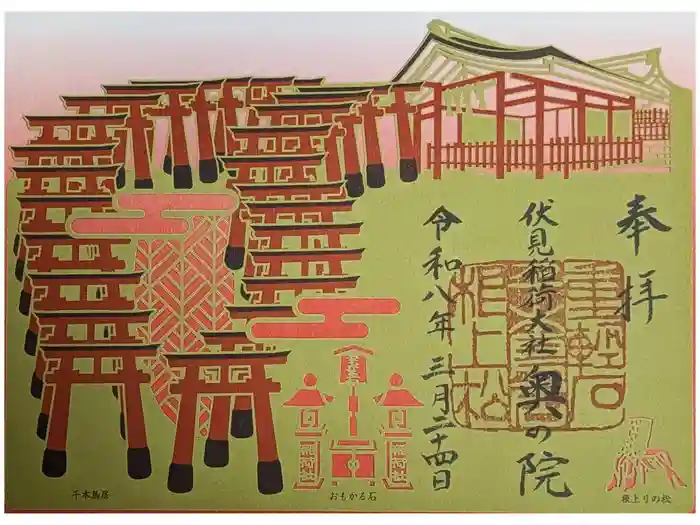 奉拝
伏見稲荷大社 奥の院
令和八年三月二十四日
重軽石
根上松
千本鳥居
おもかる石
根上りの松